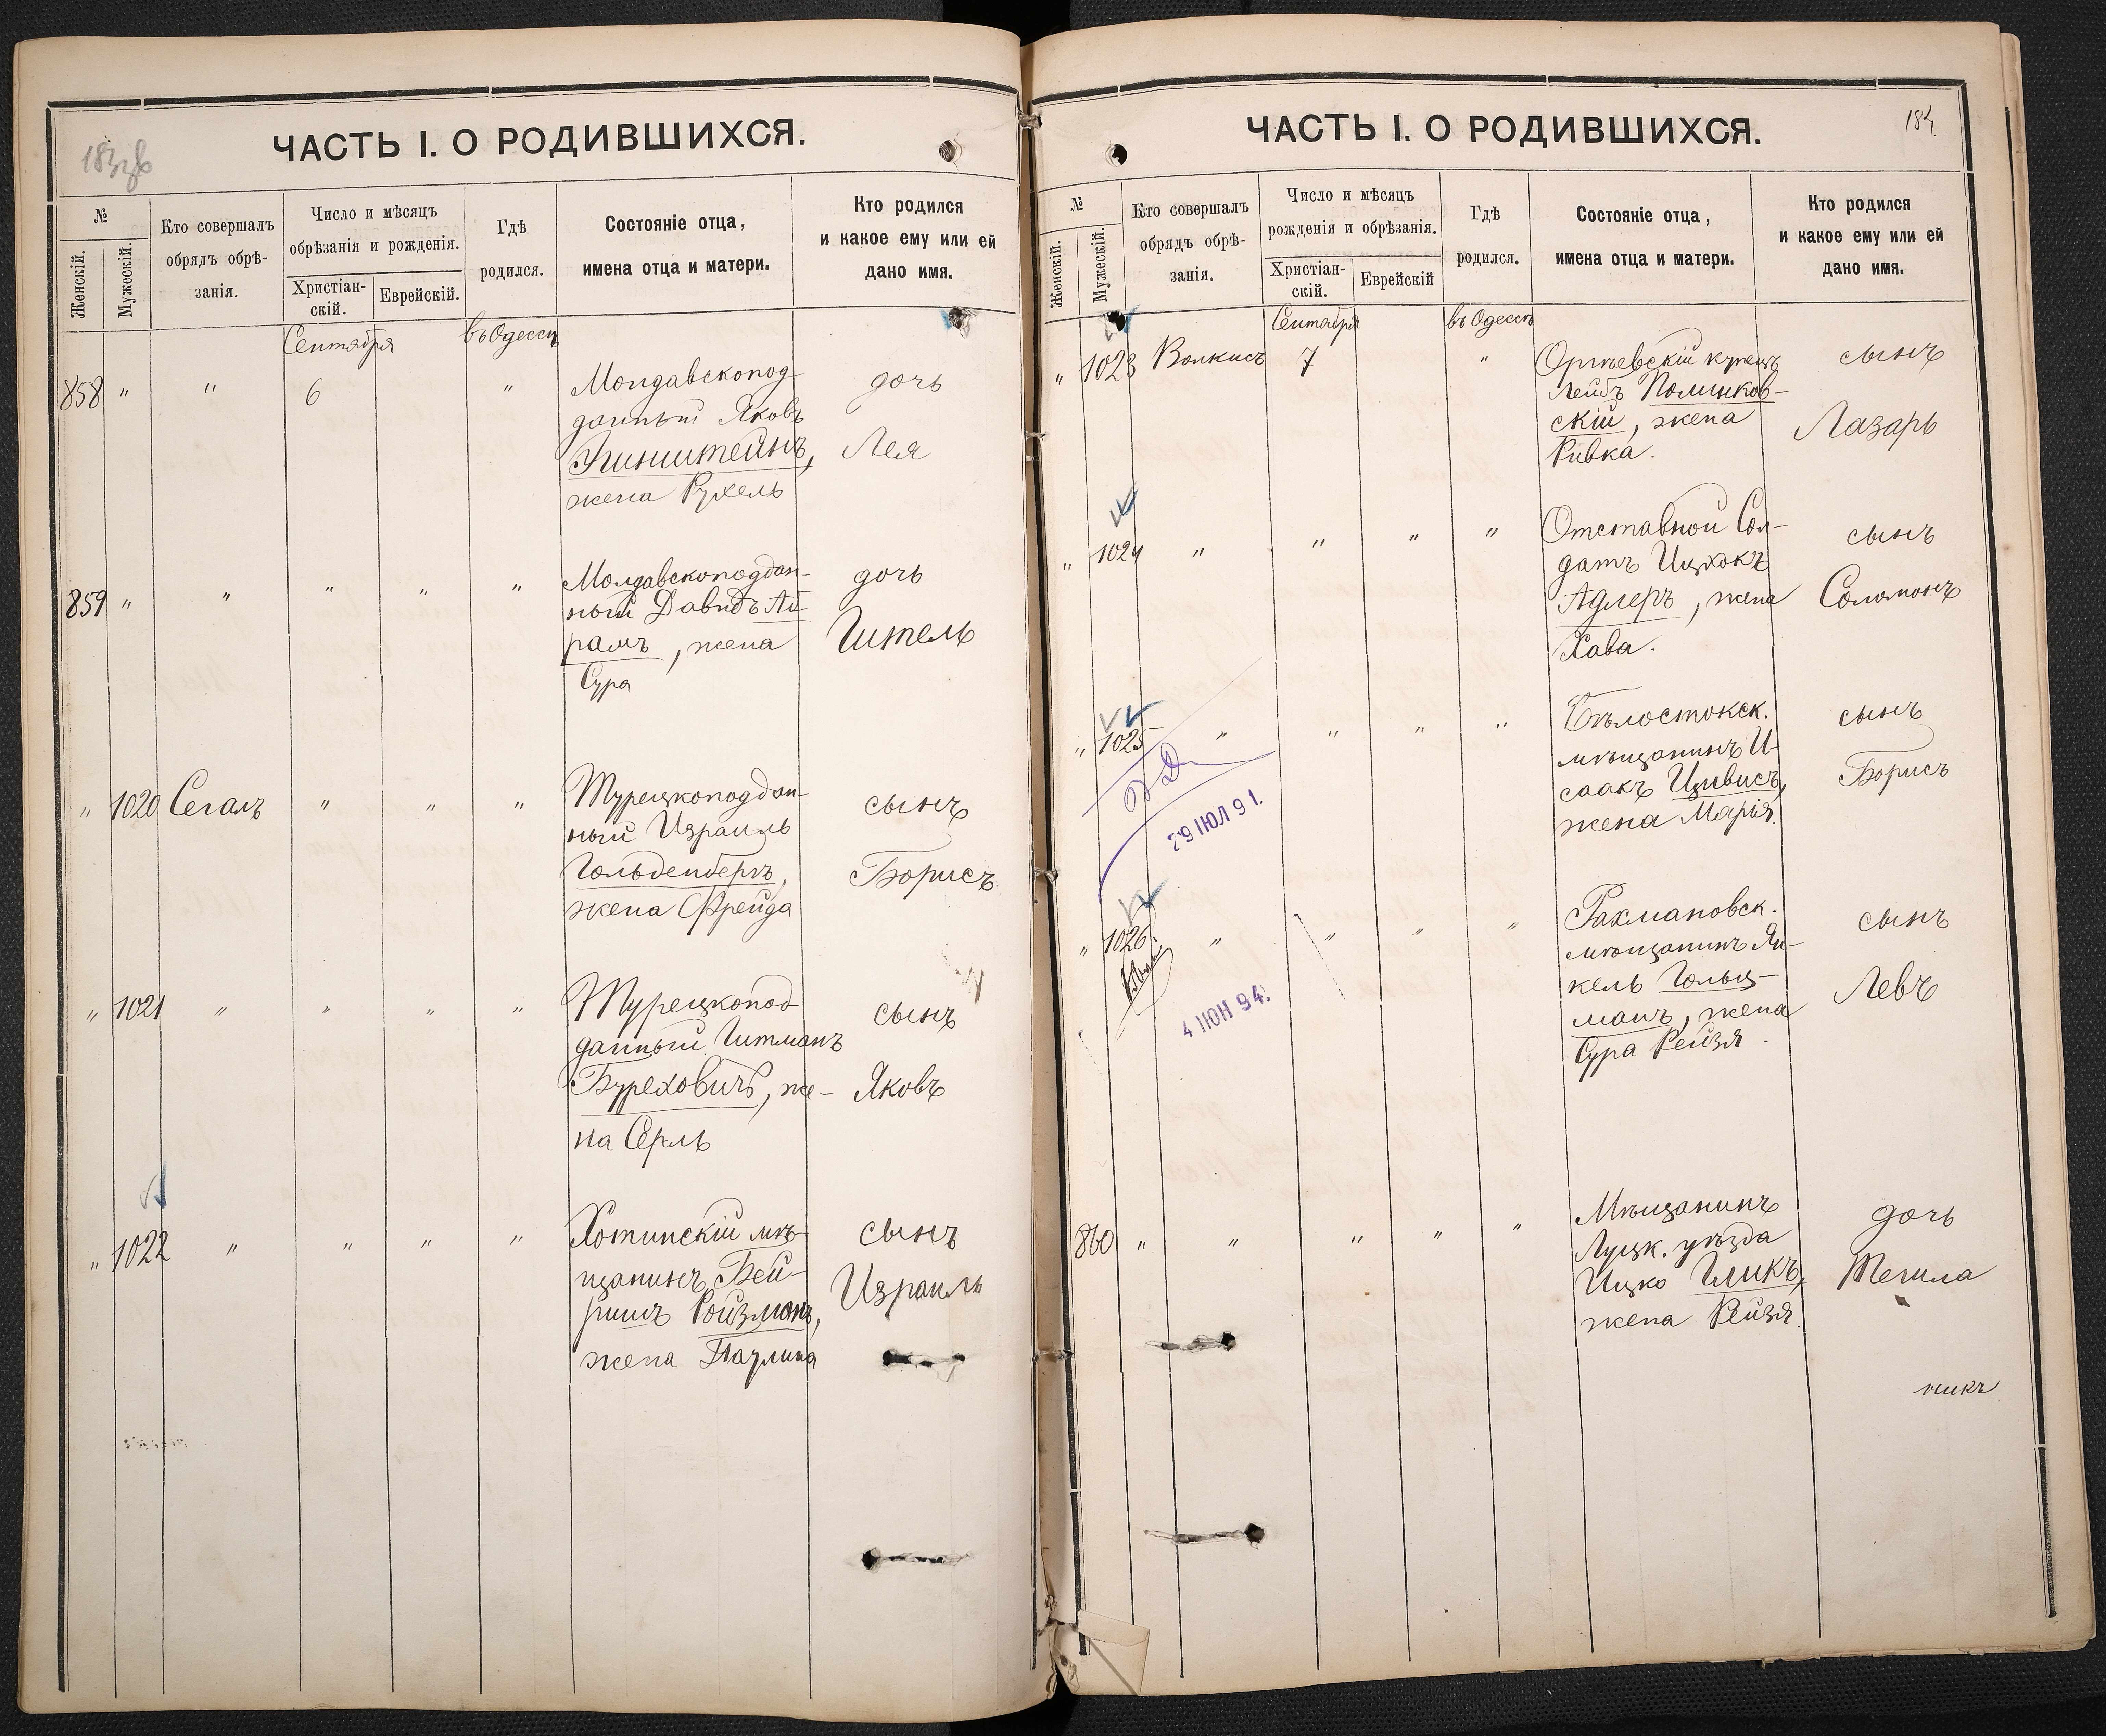 ЧАСТЬ I. О РОДИВШИХСЯ.
№
Женскій.
Мужескій.
Кто совершалъ
обрядъ обрѣ-
занія.
Число и мѣсяцъ
обрѣзанія и рожденія.
Христіан-
скій.
Еврейскій.
Гдѣ
родился.
Состояніе отца,
имена отца и матери.
Кто родился
и какое ему или ей
дано имя.
Сентября
въ Одессѣ
858 " " 6 "
Молдавскопод-
данный Яковъ
жена Рухель
дочь
Лея
859 " " " " "
Молдавскоподдан-
ный Давидъ Ай-
рамъ, жена
Сура
дочь
Гитель
" 1020 Сегалъ " " "
Турецкоподдан-
ный Израиль
Гольденбергъ,
жена Фрейда
сынъ
Борисъ
" 1021 " " " "
Турецкопод-
данный Гитманъ
Буреховичъ, же-
на Серль
сынъ
Яковъ
" 1022 " " " "
Хотинскій мѣ-
щанинъ Бей-
ришъ Ройзманъ,
жена Паулина
сынъ
Израиль
ЧАСТЬ I. О РОДИВШИХСЯ.
184.
№
Женскій.
Мужескій.
Кто совершалъ
обрядъ обрѣ-
занія.
Число и мѣсяцъ
рожденія и обрѣзанія.
Христіан-
скій.
Еврейскій
Гдѣ
родился.
Состояніе отца,
имена отца и матери.
Кто родился
и какое ему или ей
дано имя.
Сентября
въ Одессѣ
" 1023 Волкисъ 7 "
Оргѣевскій купецъ
Лейбъ Полинков-
скій, жена
Ривка.
сынъ
Лазарь
" 1024 " " " "
Отставной Сол-
датъ Ицхокъ
Адлеръ, жена
Хава.
сынъ
Соломонъ
" 1025 " " " "
Бѣлостокск.
мѣщанинъ И-
саакъ Цивисъ,
жена Марія.
сынъ
Борисъ
29 ІЮЛ 91.
" 1026 " " " "
Рахмановск.
мѣщанинъ Ян-
кель Гольц-
манъ, жена
Сура Рейзя.
сынъ
Левъ
4 ІЮН 94.
860 " " " " "
Мѣщанинъ
Луцк. уѣзда
Ицко Гликъ,
жена Рейзя.
дочь
Тегила